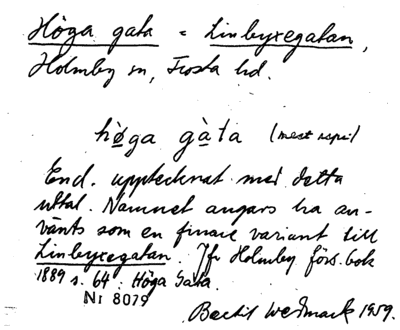 Höga gata = Linbyxegatan,
Holmby sn, Frosta hd.
hø̀ga gàta (mest ropei)
End. upptecknat med detta
uttal. Namnet angavs ha an-
vänts som en finare variant till
Linbyxegatan. Jfr Holmby förs.bok
1889 s. 64: Höga Gata.
Nr 8079
Bertil Wedmark 1959.